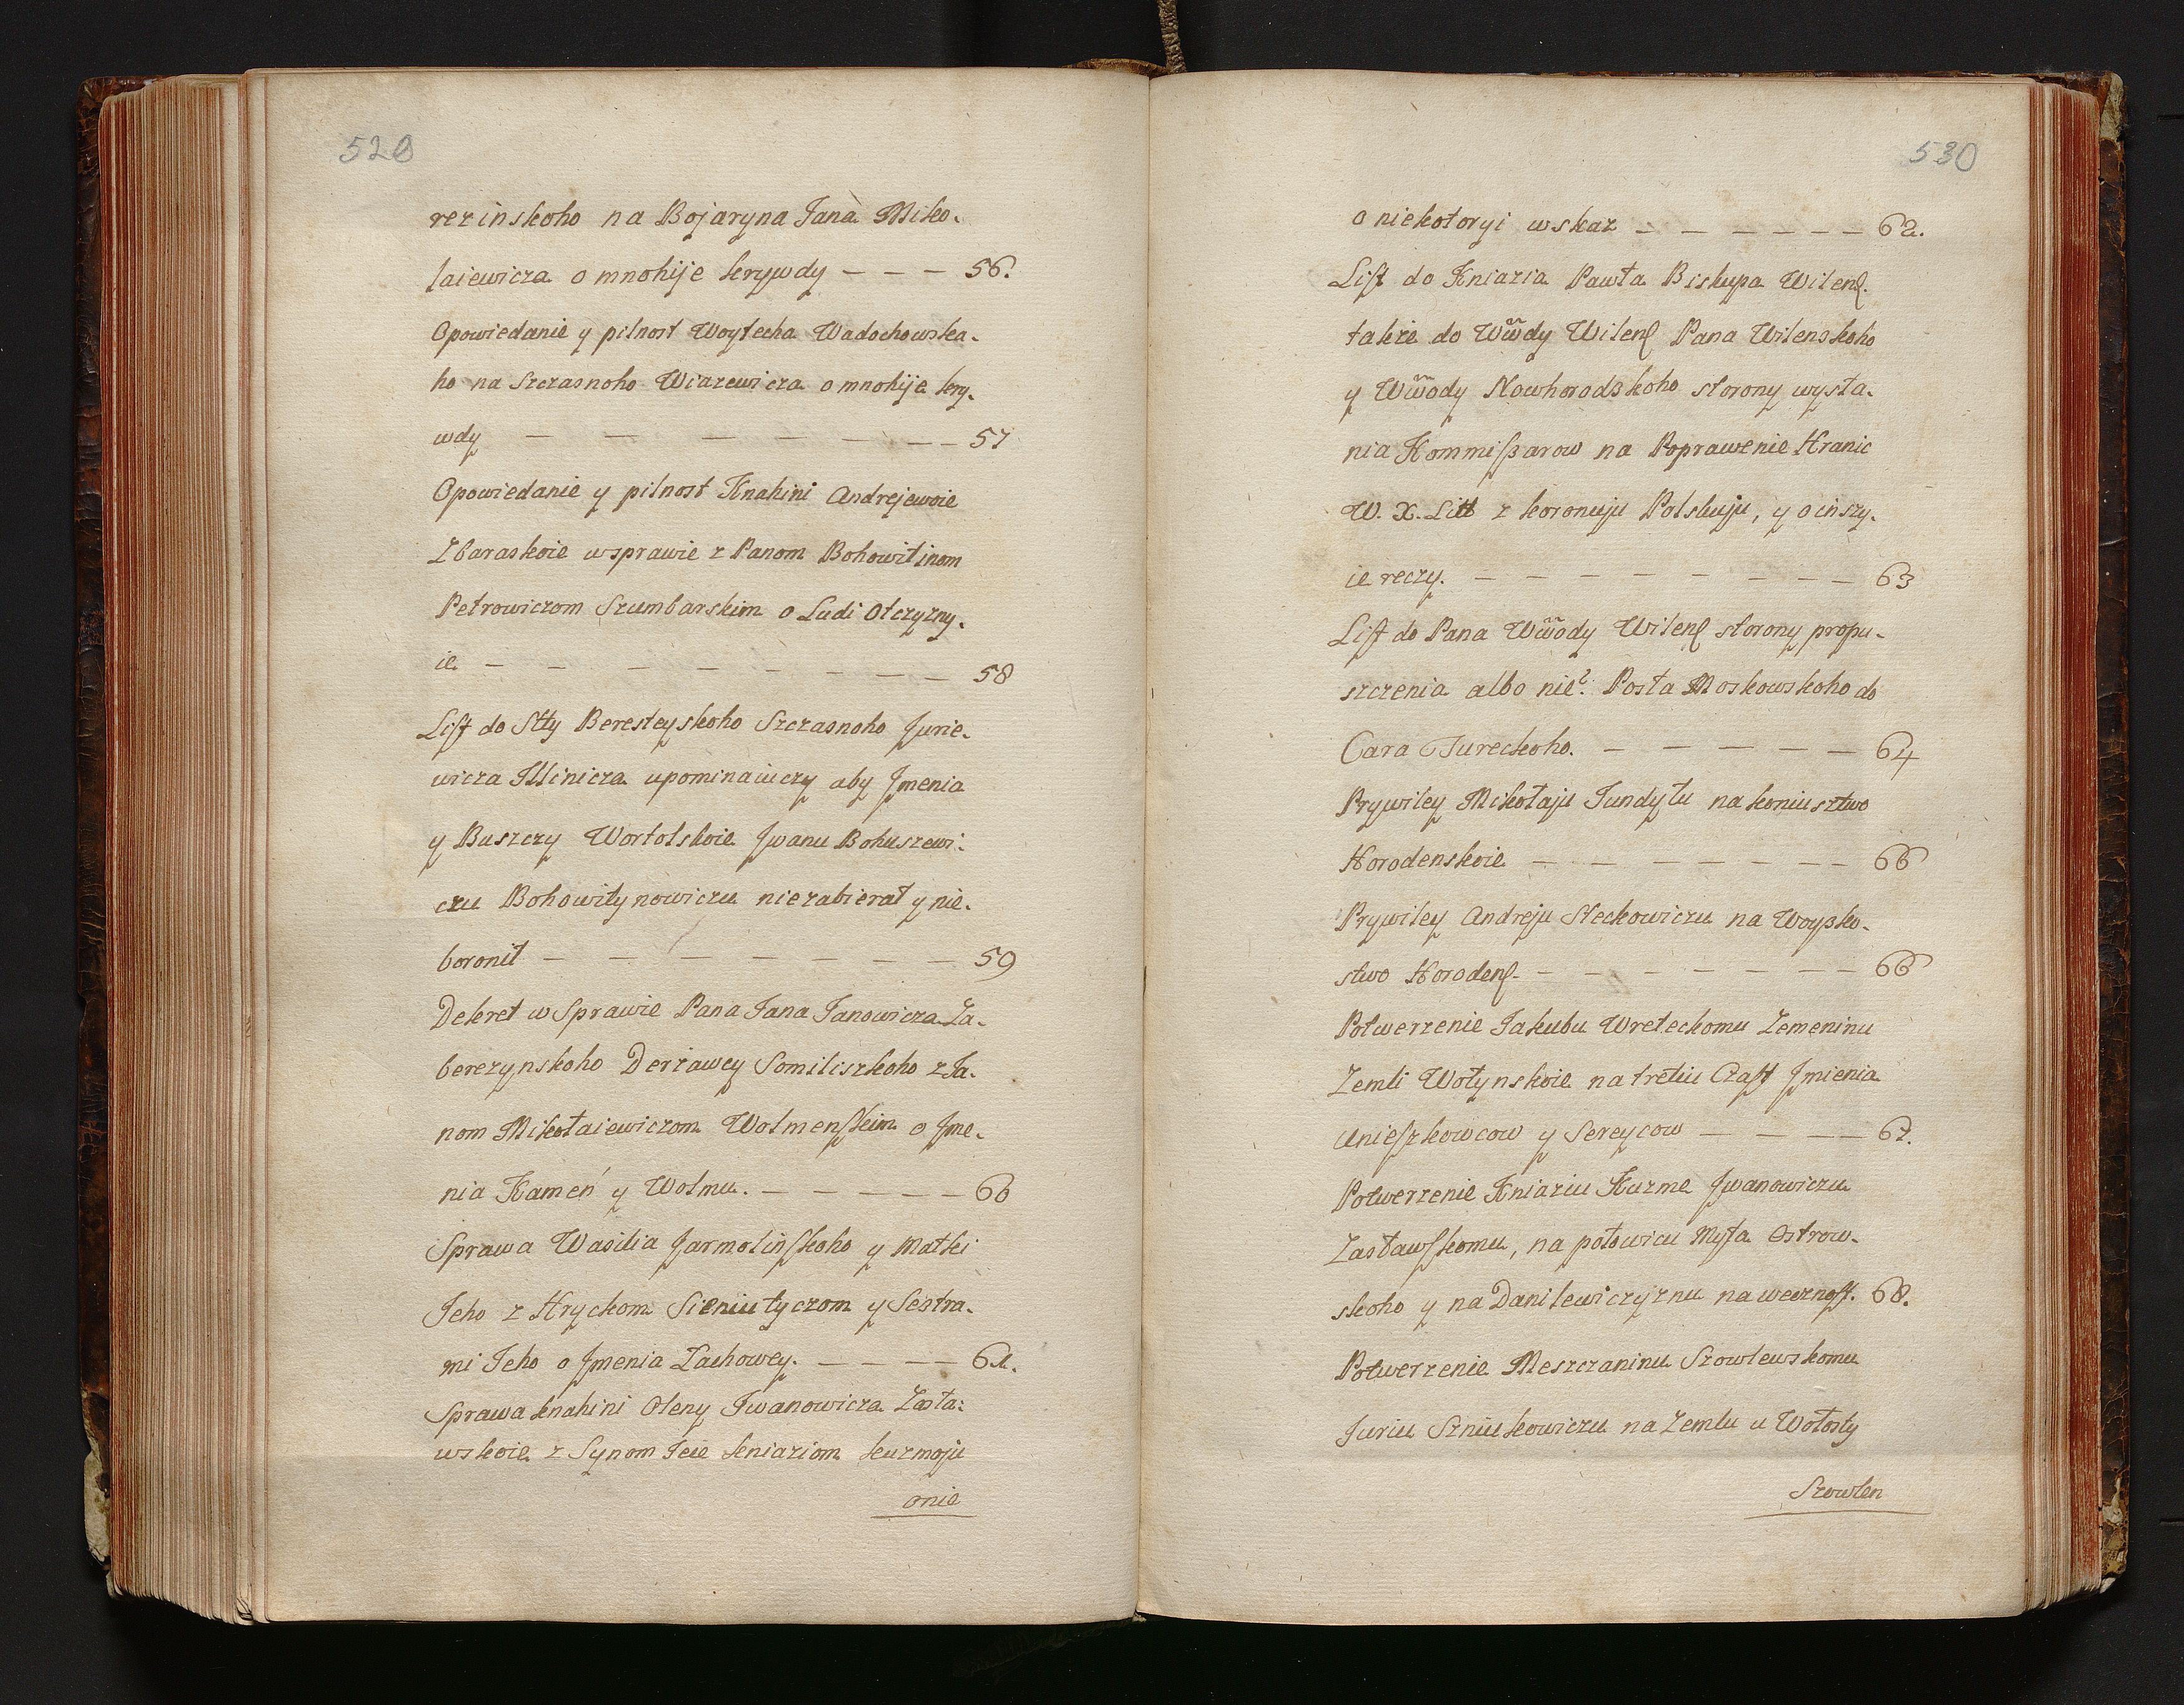 529
rezinskoho na Bojaryna Jana Miko-
laiewicza o mnohije krywdy — — — 56.
Opowiedanie y pilnost Woytecha Wadochowska-
ho na Szczasnoho Wiazewicza o mnohije kry-
wdy — — — — — — — — 57
Opowiedanie y pilnost Knahini Andrejewoie
Zbaraskoie w sprawie z Panom Bohowitinom
Petrowiczom Szumbarskim o Ludi Otczyzny-
ie — — — — — — — — 58
List do Stty Beresteyskoho Szczasnoho Jurie-
wicza Illinicza upominaiuczy aby Jmenia
y Puszczy Wortolskoie Jwanu Bohuszewi-
czu Bohowitynowiczu niezabierat y nie-
boronit — — — — — — — 59
Dekret w Sprawie Pana Jana Janowicza Za-
berezynskoho Derżawcy Somiliszkoho z Ja-
nom Mikołaiewiczom Wolmenskim o Jme-
nia Kameń y Wolmu. — — — — — 60
Sprawa Wasilia Jarmolinskoho y Matki
Jeho z Hryckom Sieniutyczom y Sestra-
mi Jeho o Jmenia Lachowcy. — — — — 61.
Sprawa knahini Oleny Jwanowicza Zasła-
wskoie z Synom Jeie kniaziom kuzmoju
onie
530
o niekotoryi wskaz — — — — — — 62.
List do Kniazia Pawła Biskupa Wilen.
także do Wwdy Wilen Pana Wilenskoho
y Wwody Nowhorodskoho storony wysła-
nia Kommissarow na Poprawenie Hranic
W. X. Litt z koronuju Polskuju, y o inszy-
ie reczy. — — — — — — — — 63
List do Pana Wwody Wilen storony propu-
szczenia albo nie? Posła Moskowskoho do
Cara Tureckoho. — — — — — 64
Prywiley Mikołaju Jundyłu na koniusztwo
Horodenskoie — — — — — — — 66
Prywiley Andreju Steckowiczu na Woysko-
stwo Horoden. — — — — — — — 66
Potwerzenie Jakubu Wreteckomu Zemeninu
Zemli Wołynskoie na tretiu Czast Jmienia
Unieszkowcow y Sereycow — — — — 67.
Potwerzenie Kniaziu Kuzme Jwanowiczu
Zasławskomu, na połowicu Myta Ostrow-
skoho y na Danilewiczyznu na wecznost. 68.
Potwerzenie Meszczaninu Szowlewskomu
Juriu Szniukowiczu na Zemlu u Wołosty
Szowlen